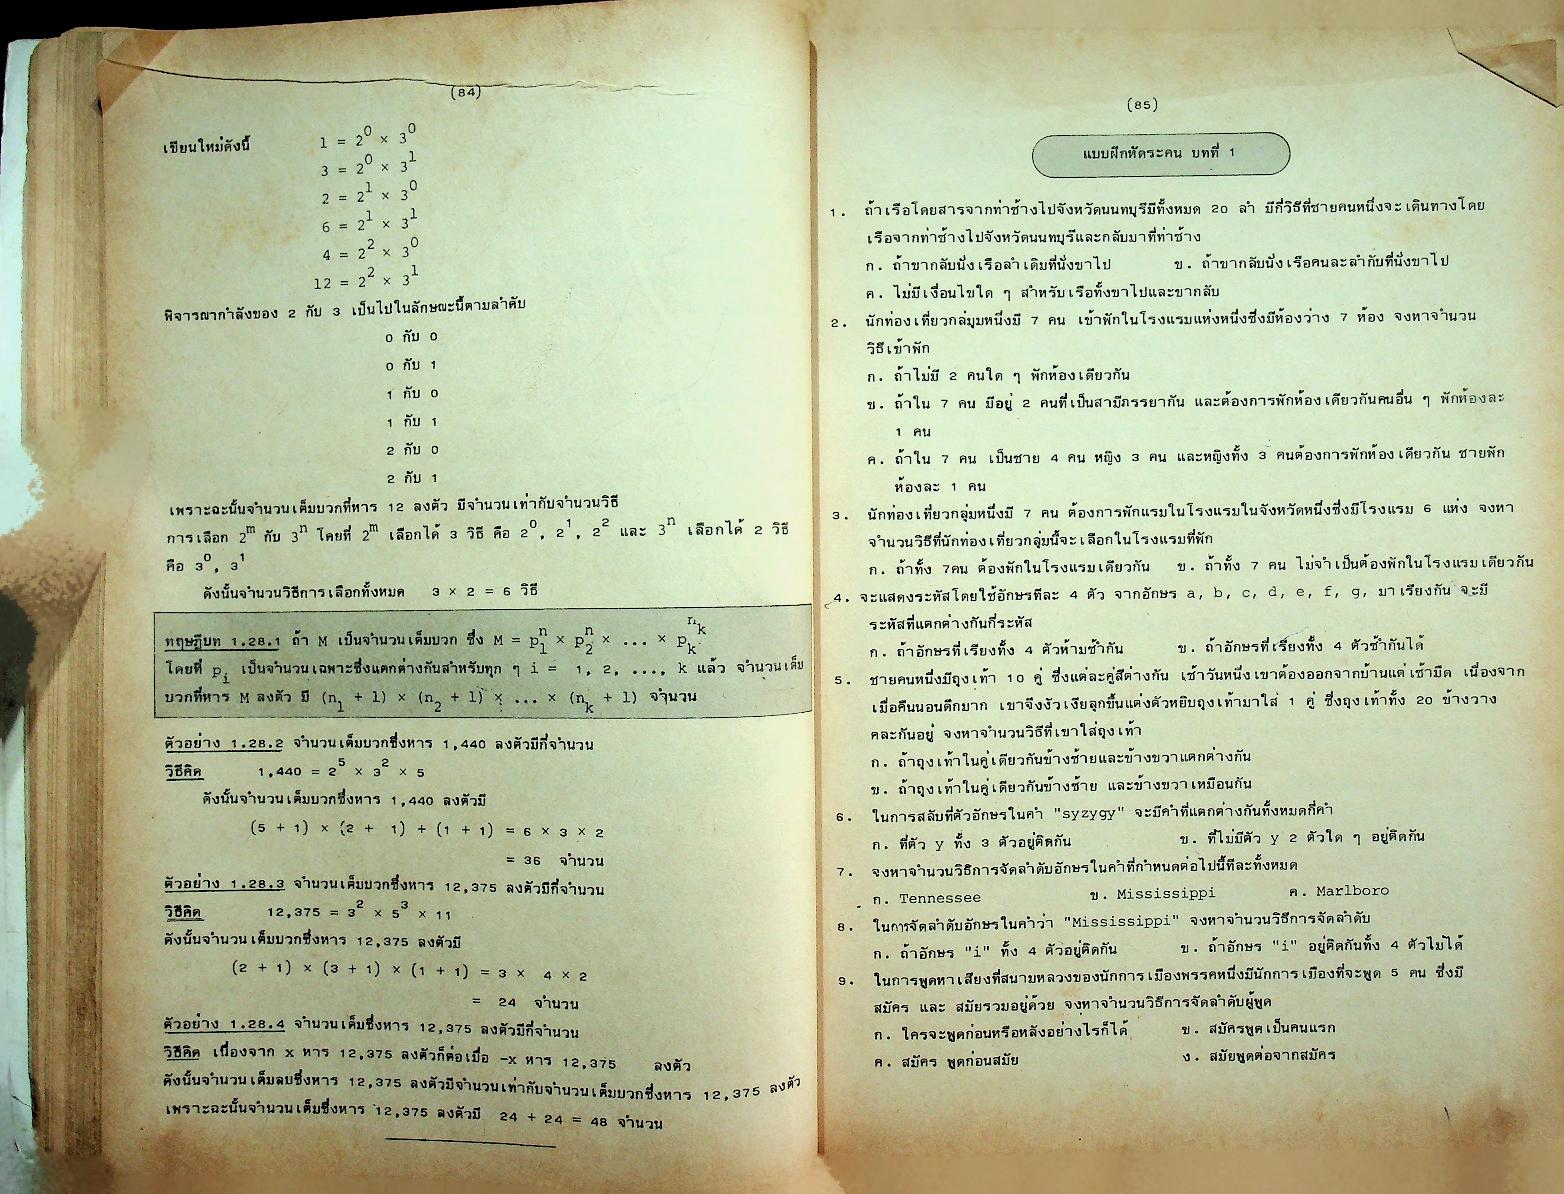 (84)
เขียนใหม่ดังนี้ 1 = 2⁰ × 3⁰
3 = 2⁰ × 3¹
2 = 2¹ × 3⁰
6 = 2¹ × 3¹
4 = 2² × 3⁰
12 = 2² × 3¹
พิจารณากำลังของ 2 กับ 3 เป็นไปในลักษณะนี้ตามลำดับ
0 กับ 0
0 กับ 1
1 กับ 0
1 กับ 1
2 กับ 0
2 กับ 1
เพราะฉะนั้นจำนวนเต็มบวกที่หาร 12 ลงตัว มีจำนวนเท่ากับจำนวนวิธี
การเลือก 2ᵐ กับ 3ⁿ โดยที่ 2ᵐ เลือกได้ 3 วิธี คือ 2⁰, 2¹, 2² และ 3ⁿ เลือกได้ 2 วิธี
คือ 3⁰, 3¹
ดังนั้นจำนวนวิธีการเลือกทั้งหมด 3 × 2 = 6 วิธี
ทฤษฎีบท 1.28.1 ถ้า M เป็นจำนวนเต็มบวก ซึ่ง M = p₁ⁿ × p₂ⁿ × ... × pₖⁿₖ
โดยที่ pᵢ เป็นจำนวนเฉพาะซึ่งแตกต่างกันสำหรับทุก ๆ i = 1, 2, ..., k แล้ว จำนวนเต็ม
บวกที่หาร M ลงตัว มี (n₁ + 1) × (n₂ + 1) × ... × (nₖ + 1) จำนวน
ตัวอย่าง 1.28.2 จำนวนเต็มบวกซึ่งหาร 1,440 ลงตัวมีกี่จำนวน
วิธีคิด 1,440 = 2⁵ × 3² × 5
ดังนั้นจำนวนเต็มบวกซึ่งหาร 1,440 ลงตัวมี
(5 + 1) × (2 + 1) + (1 + 1) = 6 × 3 × 2
= 36 จำนวน
ตัวอย่าง 1.28.3 จำนวนเต็มบวกซึ่งหาร 12,375 ลงตัวมีกี่จำนวน
วิธีคิด 12,375 = 3² × 5³ × 11
ดังนั้นจำนวนเต็มบวกซึ่งหาร 12,375 ลงตัวมี
(2 + 1) × (3 + 1) × (1 + 1) = 3 × 4 × 2
= 24 จำนวน
ตัวอย่าง 1.28.4 จำนวนเต็มซึ่งหาร 12,375 ลงตัวมีกี่จำนวน
วิธีคิด เนื่องจาก x หาร 12,375 ลงตัวก็ต่อเมื่อ -x หาร 12,375 ลงตัว
ดังนั้นจำนวนเต็มลบซึ่งหาร 12,375 ลงตัวมีจำนวนเท่ากับจำนวนเต็มบวกซึ่งหาร 12,375 ลงตัว
เพราะฉะนั้นจำนวนเต็มซึ่งหาร 12,375 ลงตัวมี 24 + 24 = 48 จำนวน
(85)
แบบฝึกหัดระคน บทที่ 1
1. ถ้าเรือโดยสารจากท่าช้างไปจังหวัดนนทบุรีมีทั้งหมด 20 ลำ มีกี่วิธีที่ชายคนหนึ่งจะเดินทางโดย
เรือจากท่าช้างไปจังหวัดนนทบุรีและกลับมาที่ท่าช้าง
ก. ถ้าขากลับนั่งเรือลำเดิมที่นั่งขาไป ข. ถ้าขากลับนั่งเรือคนละลำกับที่นั่งขาไป
ค. ไม่มีเงื่อนไขใด ๆ สำหรับเรือทั้งขาไปและขากลับ
2. นักท่องเที่ยวกลุ่มหนึ่งมี 7 คน เข้าพักในโรงแรมแห่งหนึ่งซึ่งมีห้องว่าง 7 ห้อง จงหาจำนวน
วิธีเข้าพัก
ก. ถ้าไม่มี 2 คนใด ๆ พักห้องเดียวกัน
ข. ถ้าใน 7 คน มีอยู่ 2 คนที่เป็นสามีภรรยากัน และต้องการพักห้องเดียวกันคนอื่น ๆ พักห้องละ
1 คน
ค. ถ้าใน 7 คน เป็นชาย 4 คน หญิง 3 คน และหญิงทั้ง 3 คนต้องการพักห้องเดียวกัน ชายพัก
ห้องละ 1 คน
3. นักท่องเที่ยวกลุ่มหนึ่งมี 7 คน ต้องการพักแรมในโรงแรมในจังหวัดหนึ่งซึ่งมีโรงแรม 6 แห่ง จงหา
จำนวนวิธีที่นักท่องเที่ยวกลุ่มนี้จะเลือกในโรงแรมที่พัก
ก. ถ้าทั้ง 7คน ต้องพักในโรงแรมเดียวกัน ข. ถ้าทั้ง 7 คน ไม่จำเป็นต้องพักในโรงแรมเดียวกัน
4. จะแสดงระหัสโดยใช้อักษรทีละ 4 ตัว จากอักษร a, b, c, d, e, f, g, มาเรียงกัน จะมี
ระหัสที่แตกต่างกันกี่ระหัส
ก. ถ้าอักษรที่เรียงทั้ง 4 ตัวห้ามซ้ำกัน ข. ถ้าอักษรที่เรียงทั้ง 4 ตัวซ้ำกันได้
5. ชายคนหนึ่งมีถุงเท้า 10 คู่ ซึ่งแต่ละคู่สีต่างกัน เช้าวันหนึ่งเขาต้องออกจากบ้านแต่เช้ามืด เนื่องจาก
เมื่อคืนนอนดึกมาก เขาจึงงัวเงียลุกขึ้นแต่งตัวหยิบถุงเท้ามาใส่ 1 คู่ ซึ่งถุงเท้าทั้ง 20 ข้างวาง
คละกันอยู่ จงหาจำนวนวิธีที่เขาใส่ถุงเท้า
ก. ถ้าถุงเท้าในคู่เดียวกันข้างซ้ายและข้างขวาแตกต่างกัน
ข. ถ้าถุงเท้าในคู่เดียวกันข้างซ้าย และข้างขวาเหมือนกัน
6. ในการสลับที่ตัวอักษรในคำ "syzygy" จะมีคำที่แตกต่างกันทั้งหมดกี่คำ
ก. ที่ตัว y ทั้ง 3 ตัวอยู่ติดกัน ข. ที่ไม่มีตัว y 2 ตัวใด ๆ อยู่ติดกัน
7. จงหาจำนวนวิธีการจัดลำดับอักษรในคำที่กำหนดต่อไปนี้ทีละทั้งหมด
ก. Tennessee ข. Mississippi ค. Marlboro
8. ในการจัดลำดับอักษรในคำว่า "Mississippi" จงหาจำนวนวิธีการจัดลำดับ
ก. ถ้าอักษร "i" ทั้ง 4 ตัวอยู่ติดกัน ข. ถ้าอักษร "i" อยู่ติดกันทั้ง 4 ตัวไม่ได้
9. ในการพูดหาเสียงที่สนามหลวงของนักการเมืองพรรคหนึ่งมีนักการเมืองที่จะพูด 5 คน ซึ่งมี
สมัคร และ สมัยรวมอยู่ด้วย จงหาจำนวนวิธีการจัดลำดับผู้พูด
ก. ใครจะพูดก่อนหรือหลังอย่างไรก็ได้ ข. สมัครพูดเป็นคนแรก
ค. สมัคร พูดก่อนสมัย ง. สมัยพูดต่อจากสมัคร